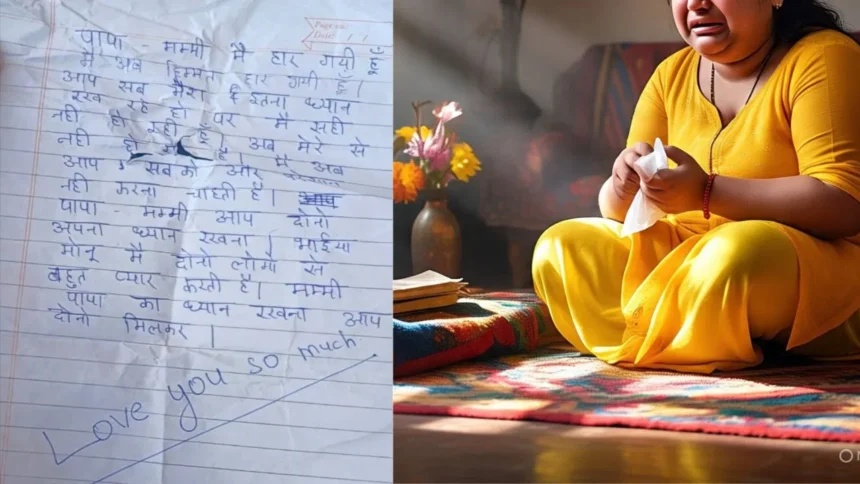 Page no.
Date: / /
पापा - मम्मी मै हार गयी हूँ
मै अब हिम्मत हार गयी हूँ।
आप सब मेरा इतना ध्यान
रख रहे हो पर मै सही
नही हो रही हूँ। अब मेरे से
नही हो है। मैं अब
आप सबको और
नही करना चाहती हूँ।
पापा - मम्मी आप दोनो
अपना ध्यान रखना। भाईया
मोनू मै दोनो लोगो से
बहुत प्यार करती हूँ। मम्मी
पापा का ध्यान रखना आप
दोनो मिलकर।
Love you so much